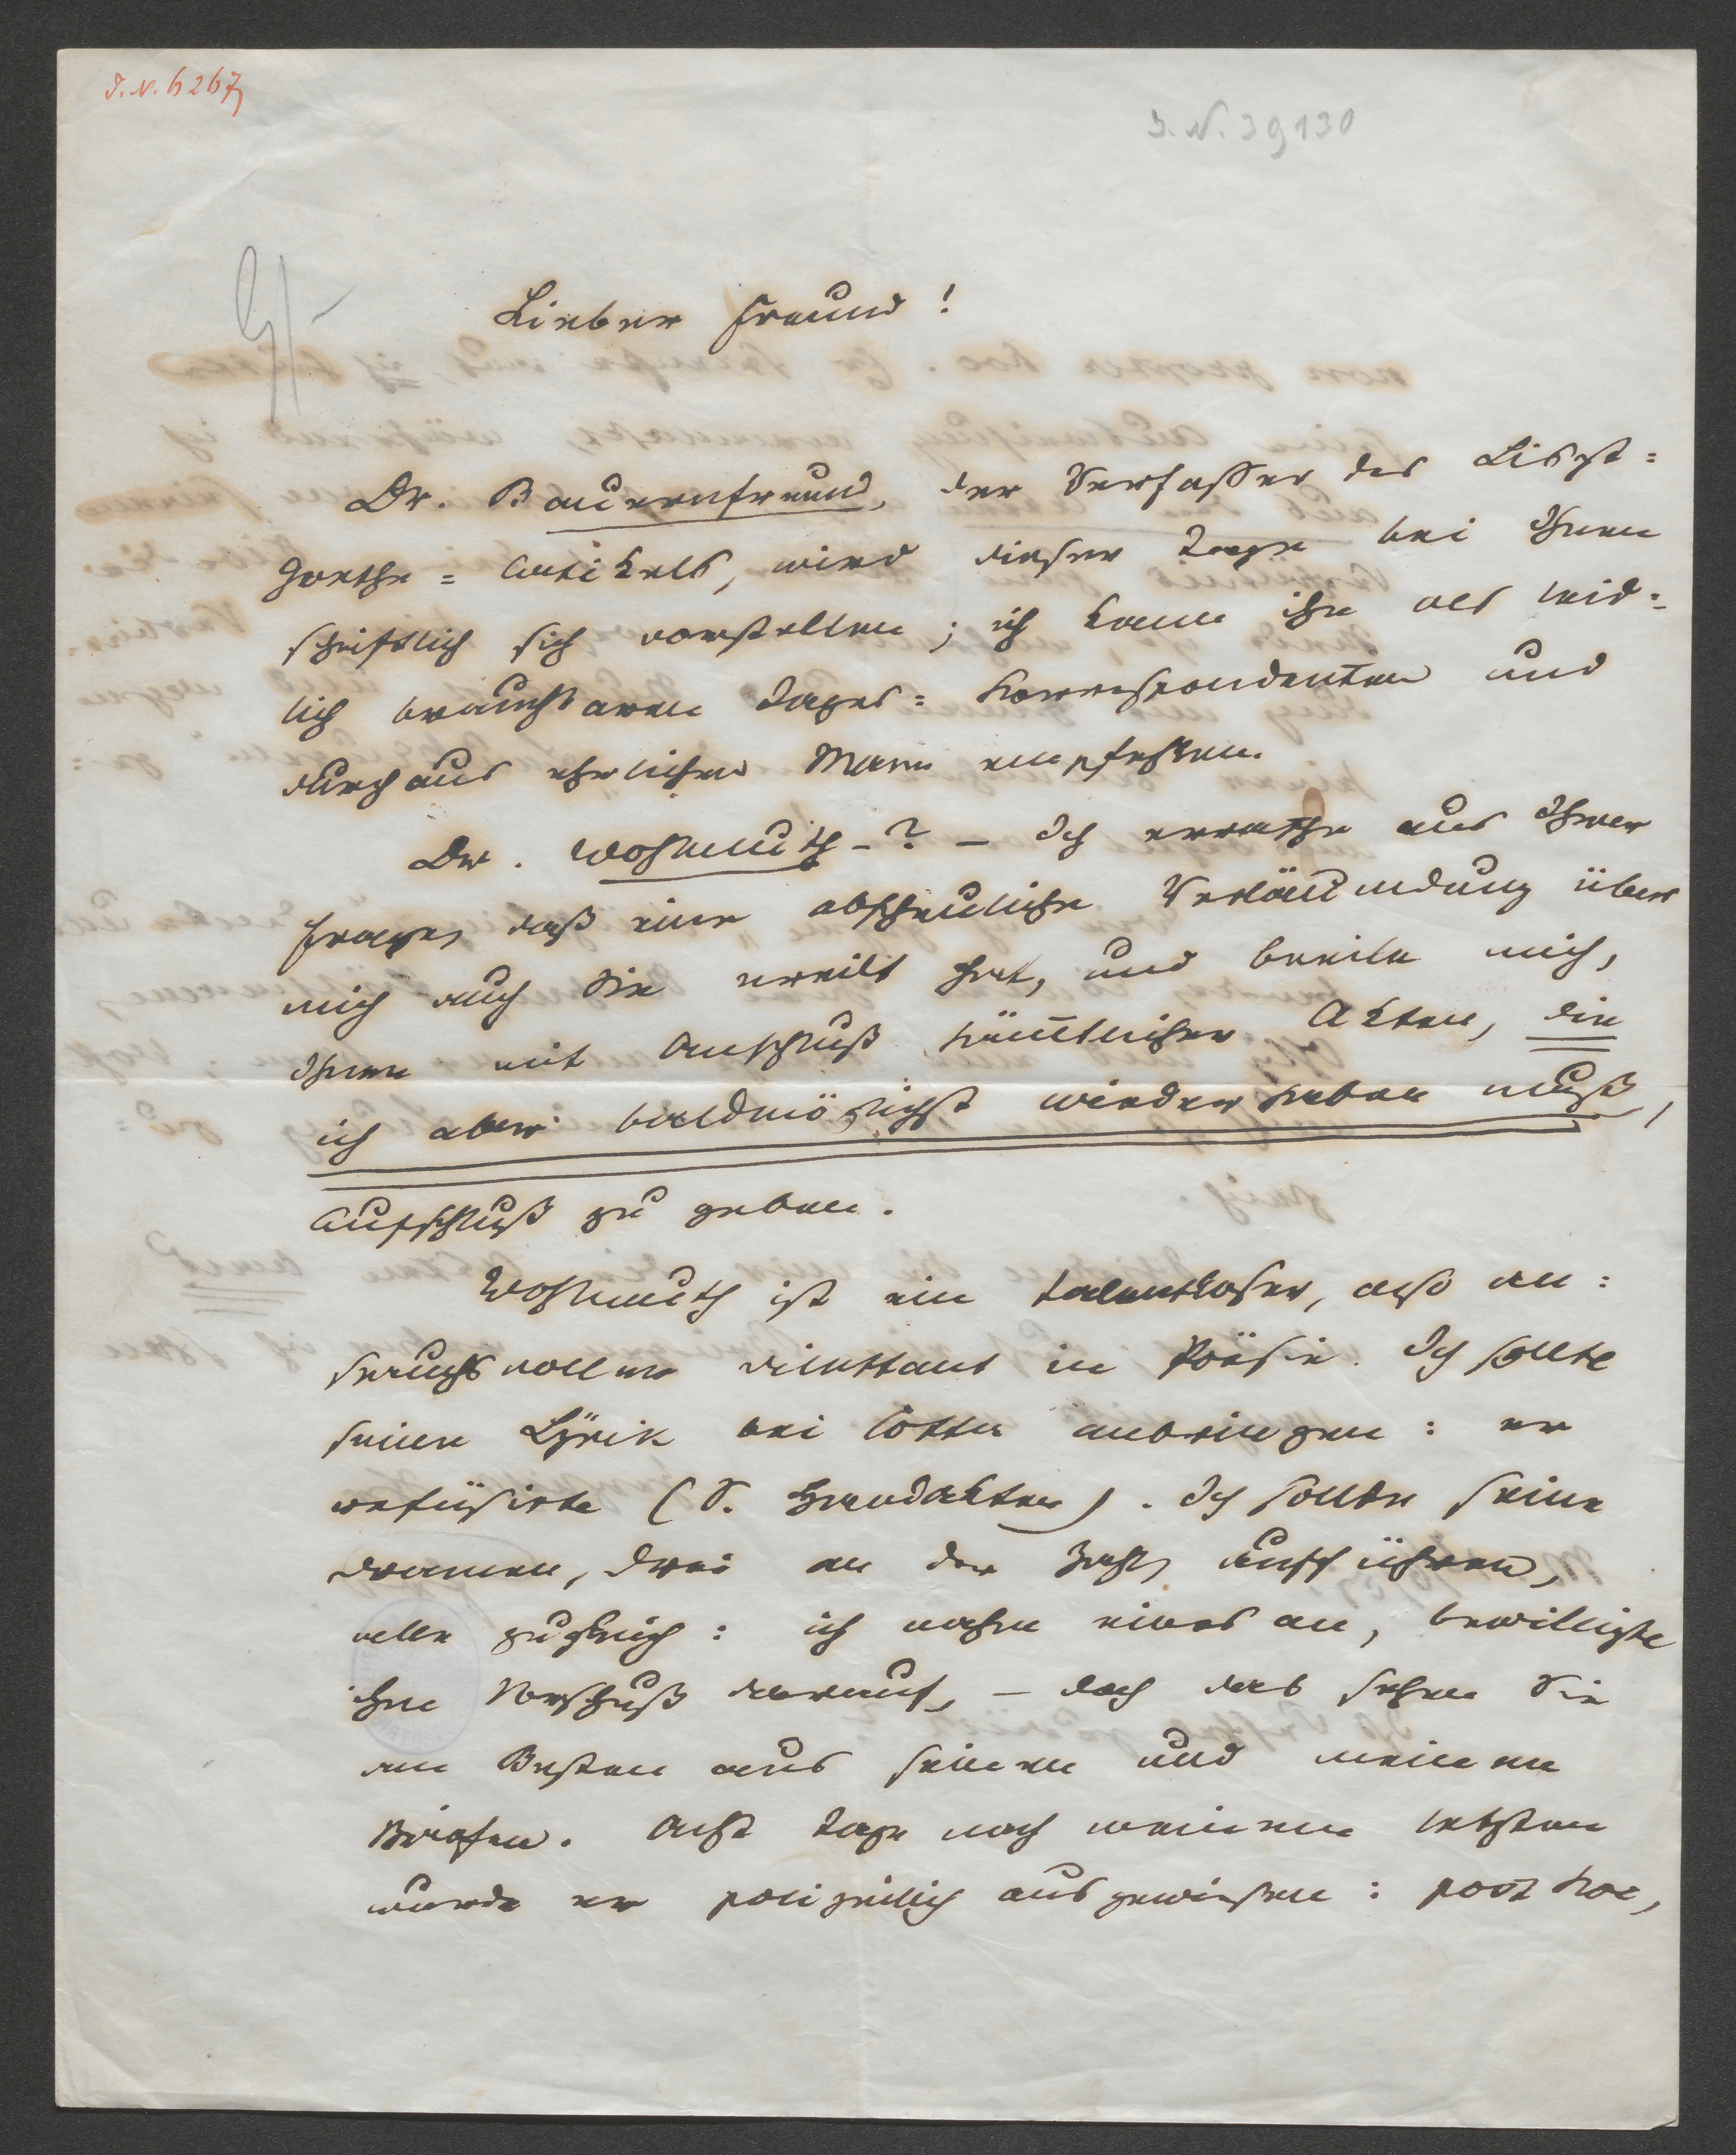 J. N. 6267
J. N. 39130
Lieber Freund!
Dr. Bauernfreund, der Verfasser des Liszt=
Goethe=Artikels, wird dieser Tage bei Ihnen
schriftlich sich vorstellen; ich kann ihn als leid=
lich brauchbaren Tages=Korrespondenten und
durchaus ehrlichen Mann empfehlen.
Dr. Wohlmuth-? – Ich errathe aus Ihrer
Frage, daß eine abscheuliche Verläumdung über
mich auch Sie ereilt hat, und beeile mich,
Ihnen mit Anschluß sämtlicher Akten, die
ich aber baldmöglichst wieder haben muß,
Aufschluß zu geben.
Wohlmuth ist ein talentloser, also an=
spruchsvoller Dilettant in Poësie. Ich sollte
seine Lÿrik bei Cotta anbringen: er
refüsirte (S. Handakten). Ich sollte seine
Dramen, drei an der Zahl, aufführen,
alle zugleich: ich nahm eines an, bewilligte
ihm Vorschuß darauf, – doch das sehen Sie
am Besten aus seinen und meinen
Briefen. Acht Tage nach meinem letzten
wurde er polizeilich ausgewiesen: post hoc,